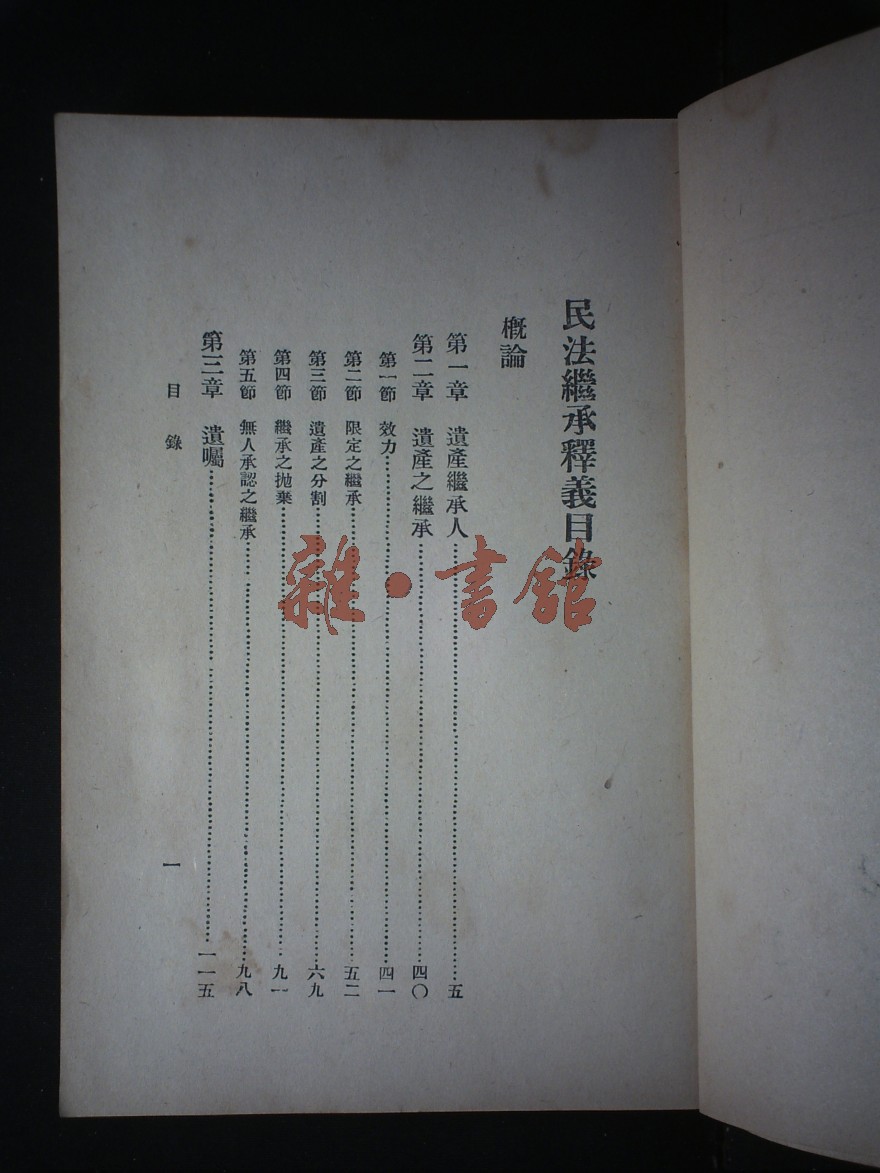 民法繼承釋義目錄
概論
第一章　遺產繼承人……五
第二章　遺產之繼承……四〇
第一節　效力……四一
第二節　限定之繼承……五二
第三節　遺產之分割……六九
第四節　繼承之拋棄……九一
第五節　無人承認之繼承……九八
第三章　遺囑……一一五
目錄
一
雜・書館